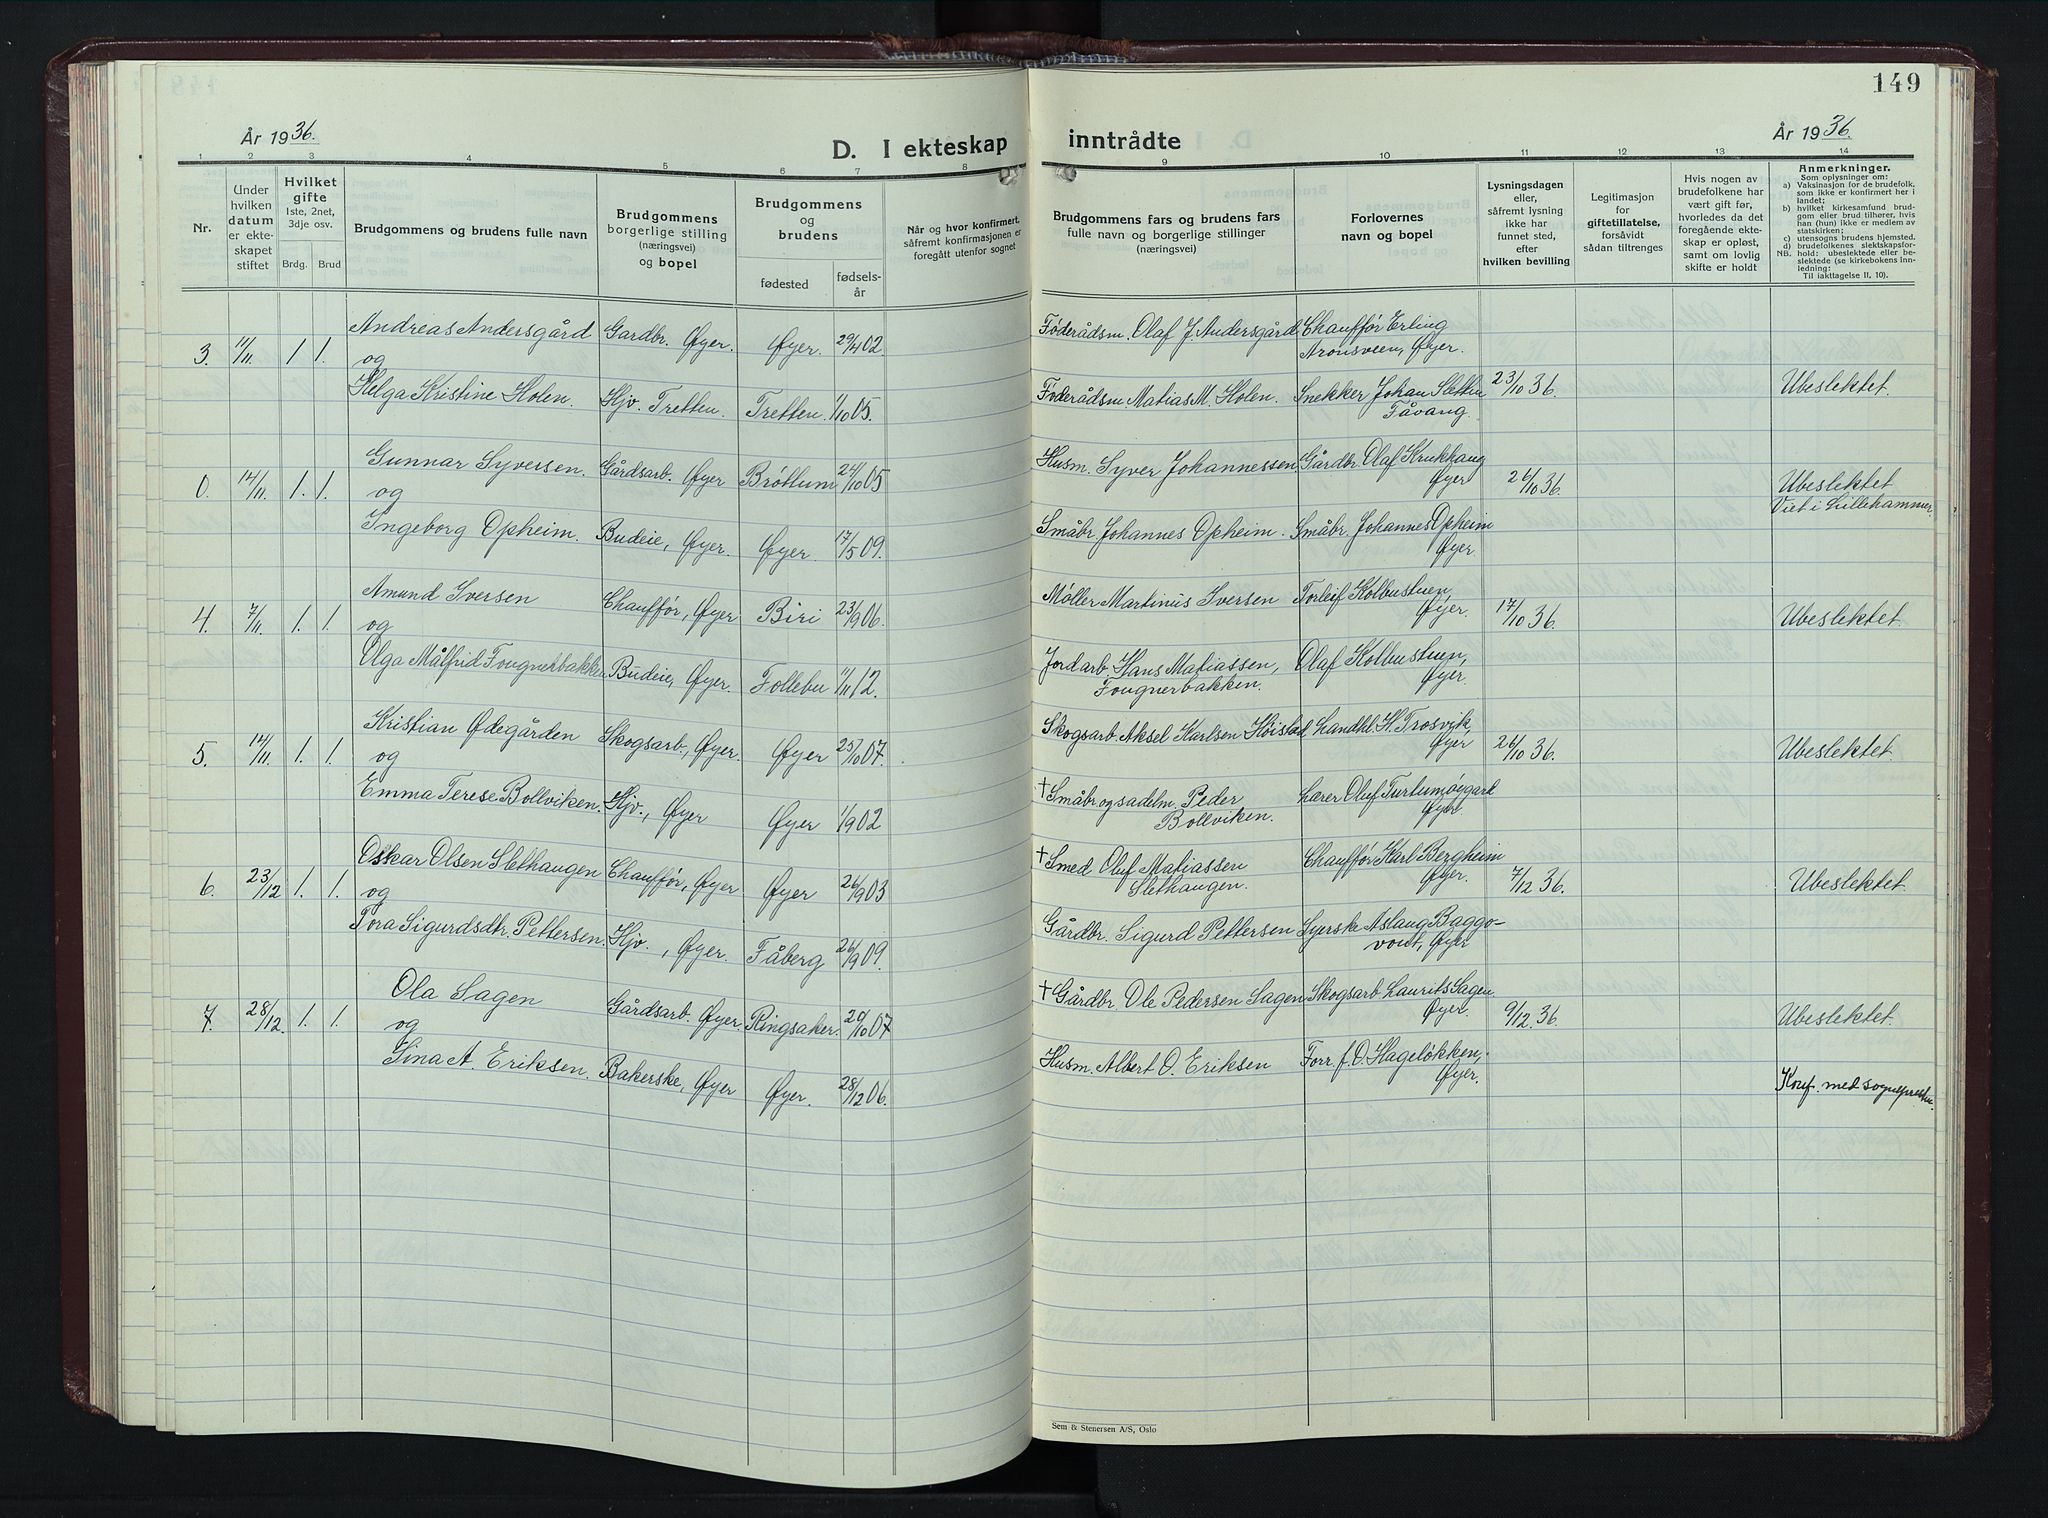 149
År 1936.
D. I ekteskap inntrådte
År 1936.
1 2 3 4 5 6 7 8 9 10 11 12 13 14
Nr.
Under hvilken datum er ekteskapet stiftet
Hvilket gifte
1ste, 2net, 3dje osv.
Brdg. Brud
Brudgommens og brudens fulle navn
Brudgommens borgerlige stilling (næringsvei) og bopel
Brudgommens og brudens
fødested
fødselsår
Når og hvor konfirmert, såfremt konfirmasjonen er foregått utenfor sognet
Brudgommens fars og brudens fars fulle navn og borgerlige stillinger (næringsvei)
Forlovernes navn og bopel
Lysningsdagen eller, såfremt lysning ikke har funnet sted, efter hvilken bevilling
Legitimasjon for giftetillatelse, forsåvidt sådan tiltrenges
Hvis nogen av brudefolkene har vært gift før, hvorledes da det foregående ekteskap er opløst, samt om lovlig skifte er holdt
Anmerkninger.
Som oplysninger om:
a) Vaksinasjon for de brudefolk, som ikke er konfirmert her i landet;
b) hvilket kirkesamfund brudgom eller brud tilhører, hvis han (hun) ikke er medlem av statskirken;
c) utensogns brudens hjemsted.
d) brudefolkenes slektskapsforhold: ubeslektede eller beslektede (se kirkebokens innledning;
NB. Til iakttagelse II, 10).
3. 11/11. 1. 1. Andreas Andersgård Gardbr. Øyer. Øyer. 29/4 02. Føderådsm. Olaf J. Andersgård Chauffør Erling
Aronsveen, Øyer.
og 23/10 36. Ubeslektet.
Helga Kristine Holen. Hjv. Tretten. Tretten. 1/10 05. Føderådsm. Matias M. Holen. Snekker Johan Sletten
Fåvang.
0. 14/11. 1. 1. Gunnar Syversen. Gårdsarb. Øyer Brøttum 24/10 05 Husm. Syver Johannessen Gårdbr. Olaf Krukhaug
Øyer
og 26/10 36. Ubeslektet.
Viet i Lillehammer.
Ingeborg Opheim. Budeie, Øyer. Øyer. 17/5 09. Småbr. Johannes Opheim. Småbr. Johannes Opheim
Øyer.
4. 7/11. 1. 1. Amund Iversen Chauffør, Øyer Biri 23/9 06. Møller Martinus Iversen Torleif Kolbustuen,
Øyer.
og 17/10 36. Ubeslektet.
Olga Målfrid Fougnerbakken Budeie, Øyer. Follebu 1/11 12. Jordarb. Hans Matiassen, Olaf Kolbustuen,
Fougnerbakken. Øyer.
5. 14/11. 1. 1. Kristian Ødegården Skogsarb., Øyer. Øyer 25/10 07. Skogsarb. Aksel Karlsen Høistad Landhl. H. Trosvik,
Øyer
og 26/10 36. Ubeslektet.
Emma Terese Bollviken. Hjv., Øyer Øyer 1/9 02 † Småbr og sadelm. Peder Lærer Oluf Turtumøygard
Bollviken. Øyer.
6. 23/12 1. 1. Oskar Olsen Slethaugen Chauffør, Øyer Øyer 26/9 03 † Smed Oluf Matiassen Chauffør Karl Bergheim
Slethaugen. Øyer.
og 7/12 36. Ubeslektet.
Tora Sigurdsdtr. Pettersen. Hjv., Øyer. Fåberg 26/9 09. Gårdbr. Sigurd Pettersen Syerske Aslaug Baggo-
vont, Øyer
7. 28/12. 1. 1. Ola Sagen Gårdsarb. Øyer. Ringsaker. 20/10 07 † Gårdbr. Ole Pedersen Sagen Skogsarb Laurits Sagen
Øyer.
og 9/12. 36. Ubeslektet.
Gina A. Eriksen. Bakerske, Øyer Øyer. 28/12 06. Husm. Albert O. Eriksen Forr. f. O. Hageløkken,
Øyer.
Konf. med sogneprestm.
Sem & Stenersen A/S, Oslo